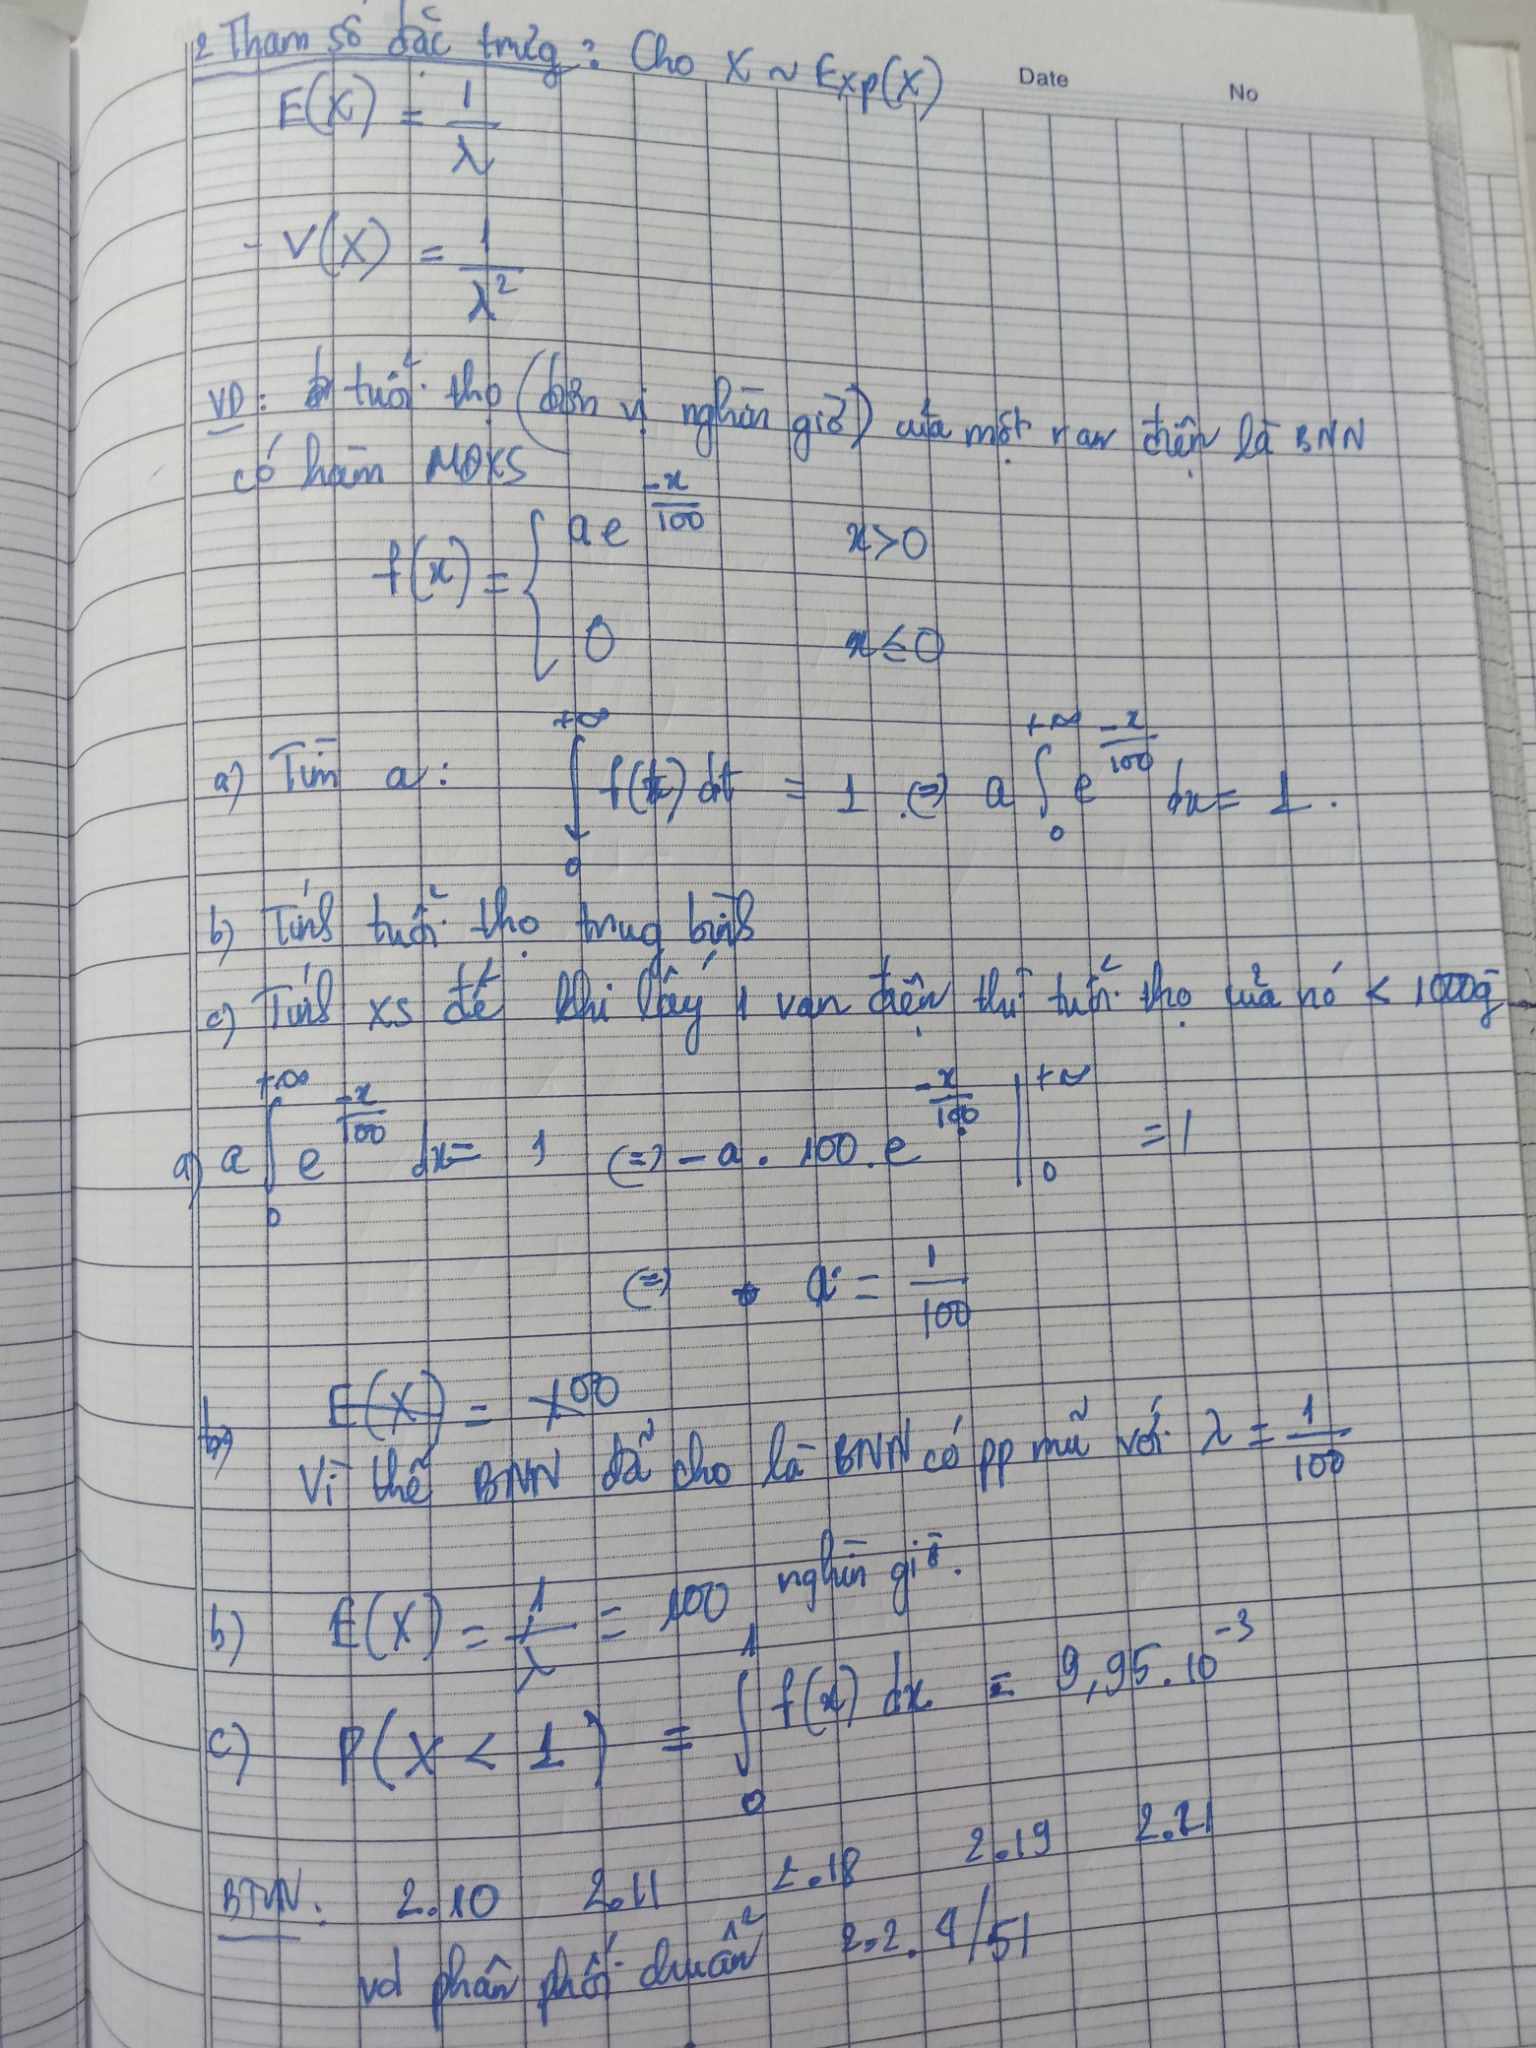 2 Tham số đặc trưng: Cho X ~ Exp(X)
Date
No
E(X) = 1/λ
- V(X) = 1/λ²
VD: tuổi thọ (đơn vị nghìn giờ) của một van điện là BNN
có hàm MĐXS
f(x) = { ae^(-x/100) x>0
0 x≤0
a) Tìm a: ∫₀^(+∞) f(x) dt = 1 (=) a ∫₀^(+∞) e^(-x/100) dx = 1.
b) Tính tuổi thọ trung bình
c) Tính xs để khi lấy 1 van điện thì tuổi thọ của nó < 1000g
a) a ∫₀^(+∞) e^(-x/100) dx = 1 (=) -a. 100. e^(-x/100) |₀^(+∞) = 1
(=) a = 1/100
b) E(X) = 100
Vì thế BNN đã cho là BNN có pp mũ với λ = 1/100
b) E(X) = 1/λ = 100 nghìn giờ.
c) P(X < 1) = ∫₀^1 f(x) dx = 9,95.10^-3
BTVN: 2.10 2.11 2.18 2.19 2.21
vd phân phối chuẩn 2.2.4/51